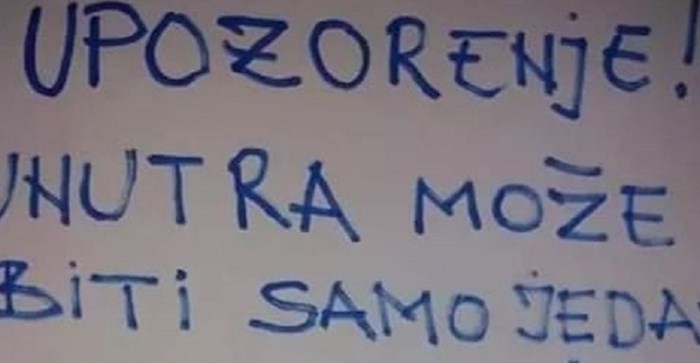 UPOZORENJE!
UNUTRA MOŽE
BITI SAMO JEDA